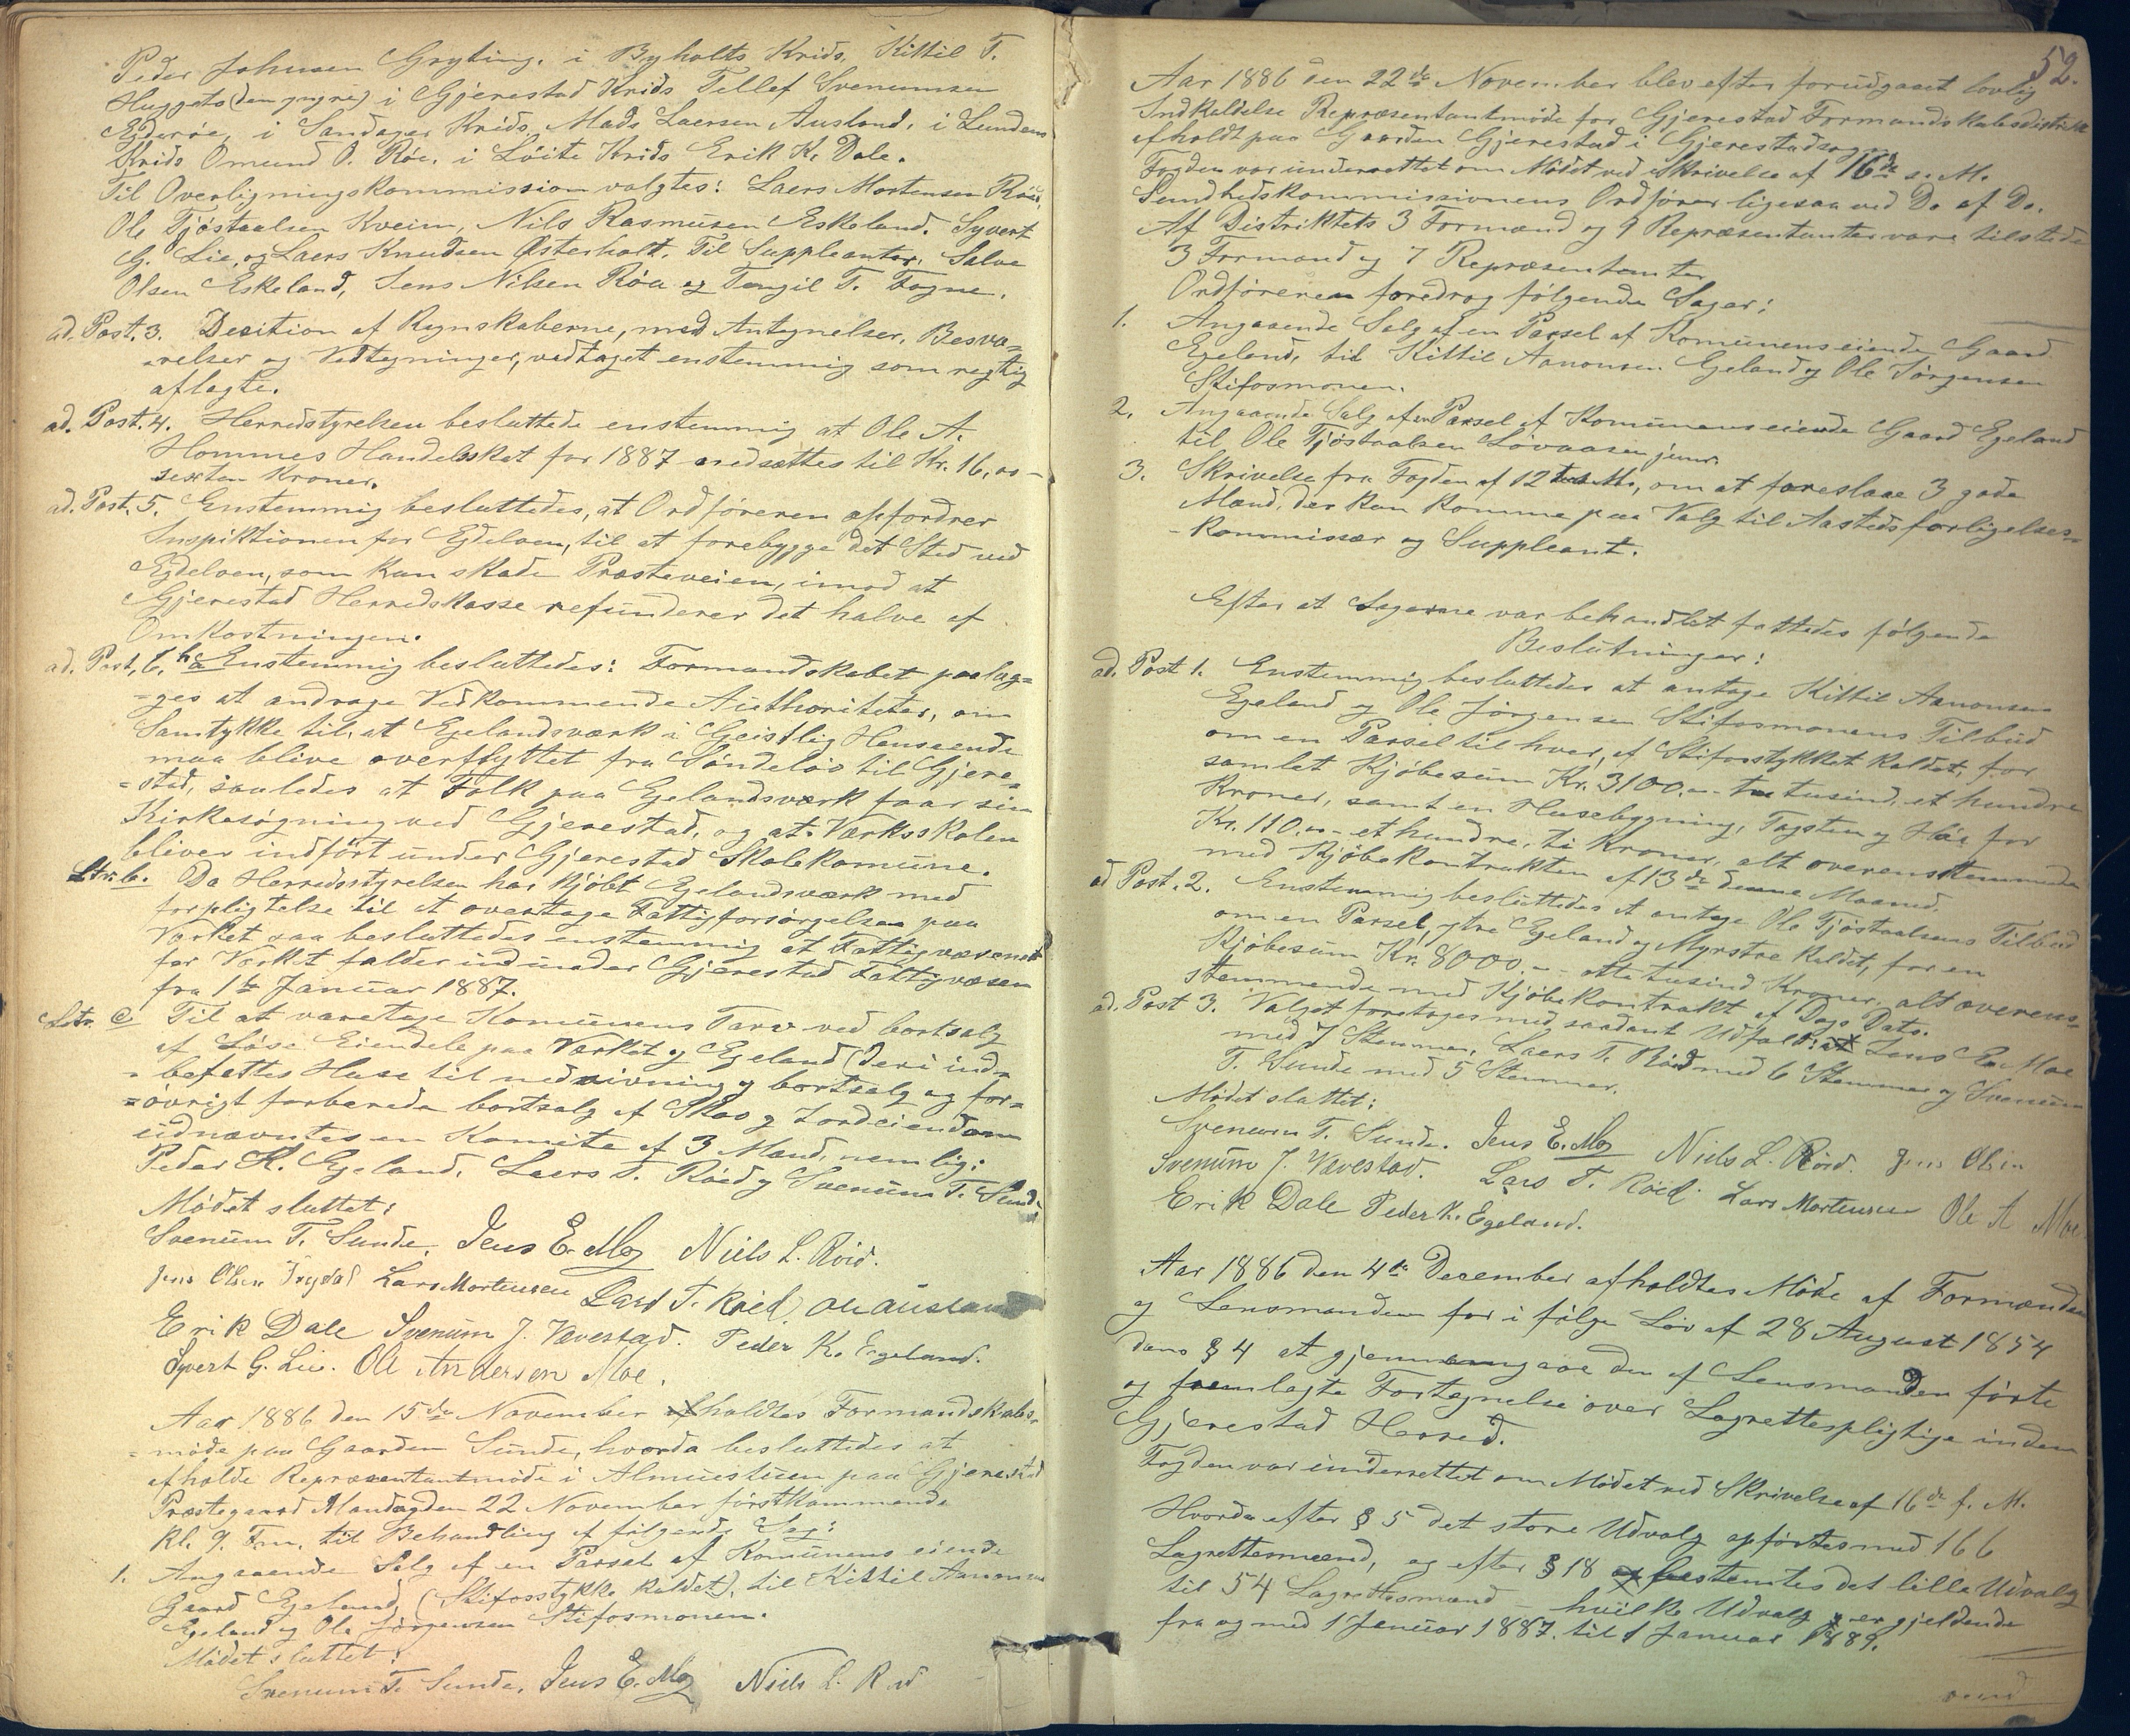 Peder Johnsen Gryting, i Byholts Krids, Kittil T.
Huggets (den yngre) i Gjerestad Krids Tellef Svenumsen
Egderøe, i Sandager Krids, Mads Laersen Ausland, i Lundens
Krids Omund O. Røe, i Löite Krids Erik K. Dale.
Til Overligningskommission valgtes: Laers Mortensen Röed,
Ole Tjöstaalsen Kveim, Nils Rasmusen Eskeland. Syvert
G. Lie, og Laers Knudsen Østerholt. Til Suppleanter, Salve
Olsen Eskeland, Jens Nilsen Röe og Tengil T. Fogne.
ad. Post. 3. Desition af Regnskaberne, med Antegnelser, Besva=
=relser og Vedtegninger, vedtaget enstemmig som regtig
aflagte.
ad. Post. 4. Herredstyrelsen besluttede enstemmig at Ole A.
Hommes Handelsskat for 1887 nedsættes til Kr. 16,00 -
sexten Kroner.
ad. Post. 5. Enstemmig besluttedes, at Ordföreren opfordrer
Inspiktionen for Egdelven, til at forebygge det Sted ved
Egdelven, som kan skade Præsteveien, imod at
Gjerestad Herredskasse refunderer det halve af
Omkostningen.
ad. Post. 6. Enstemmig besluttedes: Formandskabet paalæg=
=ges at andrage Vedkommende Authoriteter, om
Samtykke til, at Egelandsværk i Geistlig Henseende
maa blive overflyttet fra Söndeløs til Gjere=
=stad, saaledes at Folk paa Egelandsværk faar sin
Kirkesøgning ved Gjerestad, og at Værksskolen
bliver indfört under Gjerestad Skolekomune.
Ltr. b. Da Herredsstyrelsen har kjöbt Egelandsværk med
forpligtelse til at overtage Fattigforsörgelsen paa
Værket saa besluttedes enstemmig at Fattigvæsenet
for Værket falder ind under Gjerestad Fattigvæsen
fra 1ste Januar 1887.
Litr. C Til at varetage Komunens Tarv ved bortsalg
af Löse Eiendele paa Værket og Egeland (deri ind=
=befattes Huse til nedrivning og bortsalg og for=
=övrigt forberede bortsalg af Skov og Jordeiendom
udnævntes en Komite af 3 Mænd, nemlig:
Peder K. Egeland, Laers T. Röed og Svenum T. Sunde
Mödet sluttet:
Svenum T. Sunde. Jens E. Moe Niels L. Röed.
Jens Olsen Lars Mortensen Lars T. Röed Ole Ausland
Erik Dale Svenum J. Vævestad. Peder K. Egeland.
Syvert G. Lie. Ole Andersen Moe.
Aar 1886 den 15de November afholdtes Formandskabs=
=möde paa Gaarden Sunde, hvorda besluttedes at
afholde Repræsentantmöde i Almuestuen paa Gjerestad
Præstegaard Mandag den 22 November förstkommende
kl. 9. Fm. til Behandling af fölgende Sag:
1. Angaaende Salg af en Parsel af Komunens eiende
Gaard Egeland, (Stifosstykke kaldet), til Kittil Aanonsen
Egeland og Ole Jörgensen Stifosmonen.
Mödet sluttet:
Svenum T. Sunde, Jens E. Moe Niels L. Röed
52.
Aar 1886 den 22de November blev efter forudgaaet lovlig
Indkaldelse Repræsentantmöde for Gjerestad Formandskabsdistrikt
afholdt paa Gaarden Gjerestad i Gjerestadsogn.
Fogden var underrettet om Mödet ved Skrivelse af 16de s. M.
Sundhedskommissionens Ordförer ligesaa ved Do af Do.
Af Distriktets 3 Formænd og 9 Repræsentanter vare tilstede
3 Formænd og 7 Repræsentanter
Ordföreren foredrog fölgende Sager:
1. Angaaende Salg af en Parsel af Komunens eiende Gaard
Egeland, til Kittil Aanonsen Egeland og Ole Jörgensen
Stifosmonen.
2. Angaaende Salg af en Parsel af Komunens eiende Gaard Egeland
til Ole Tjöstaalsen Lövaasen junr.
3. Skrivelse fra Fogden af 12te ds. Ms, om at foreslaae 3 gode
Mænd, der kan komme paa Valg til Aastedsforligelses=
-kommissær og Suppleant.
Efter at Sagerne var behandlet fattedes fölgende
Beslutninger:
ad. Post 1. Enstemmig besluttedes at antage Kittil Aanonsen
Egeland og Ole Jörgensen Stifosmonens Tilbud
om en Parsel til hver, af Stifosstykket kaldet, for
samlet Kjöbesum Kr. 3100.- tre tusind, et hundre
Kroner, samt en Husebygning, Tagsten og Høe for
Kr. 110.00- et hundre, ti Kroner, alt overensstemmende
med Kjöbekontrakten af 13de denne Maaned.
ad Post. 2. Enstemmig besluttedes at antage Ole Tjöstaalsens Tilbud
om en Parsel, ytre Egeland og Myrstøe kaldet, for en
Kjöbesum Kr. 8000.- - otte tusind Kroner, alt overens=
stemmende med Kjöbekontrakt af Dags Dato.
ad. Post 3. Valget foretoges med saadant Udfald: at Jens E. Moe
med 7 Stemmer, Laers T. Röed med 6 Stemmer og Svenum
T. Sunde med 5 Stemmer.
Mödet sluttet:
Svenum T. Sunde. Jens E. Moe Niels L. Röed. Jens Olsen
Svenum J. Vævestad. Lars T. Röed. Lars Mortensen Ole A Moe
Erik Dale Peder K. Egeland.
Aar 1886 den 4de December afholdtes Möde af Formænden
og Lensmanden for i fölge Lov af 28 August 1854
dens § 4 at gjennemgaae den af Lensmanden förte
og fremlagte Fortegnelse over Lagrettespligtige inden
Gjerestad Herred.
Fogden var underrettet om Mödet ved Skrivelse af 16de f. M.
Hvorda efter § 5 det store Udvalg opförtes med 166
Lagrettesmænd, og efter § 18 bestemtes det lille Udvalg
til 54 Lagrettesmænd - hvilke Udvalg er gjeldende
fra og med 1 Januar 1887. til 1 Januar 1889.